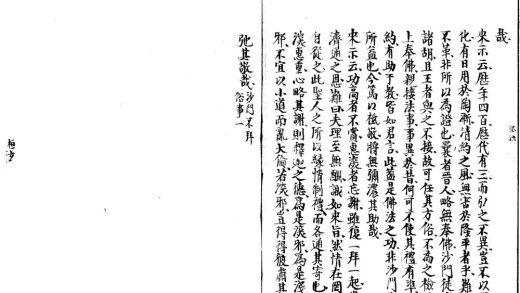 哉
來示云歷年四百歷代有三而弘之不異豈不以
化有日用於陶漸清約之風無害於隆平者乎難
不革非所以為證也曩者晉人略無奉佛沙門徒
諸胡且王者與之不接故可任其方俗不為之檢
上奉佛親接法事事異於昔何可不使其禮有準
約有助于教皆如君言此蓋是佛法之功非沙門
所益也今篤以祗敬將無彌濃其助哉
來示云功高者不賞惠深者忘謝雖復一拜一起
濟通之恩難曰夫理至無酬誠如來旨然情在罔
自從之此聖人之所以緣情制禮而各通其寄也
深惠重必略其謝則釋迦之德為是深邪為是淺
邪不宜以小道而亂大倫若深邪豈得得彼肅其
弛其敬哉沙門不拜
俗事一